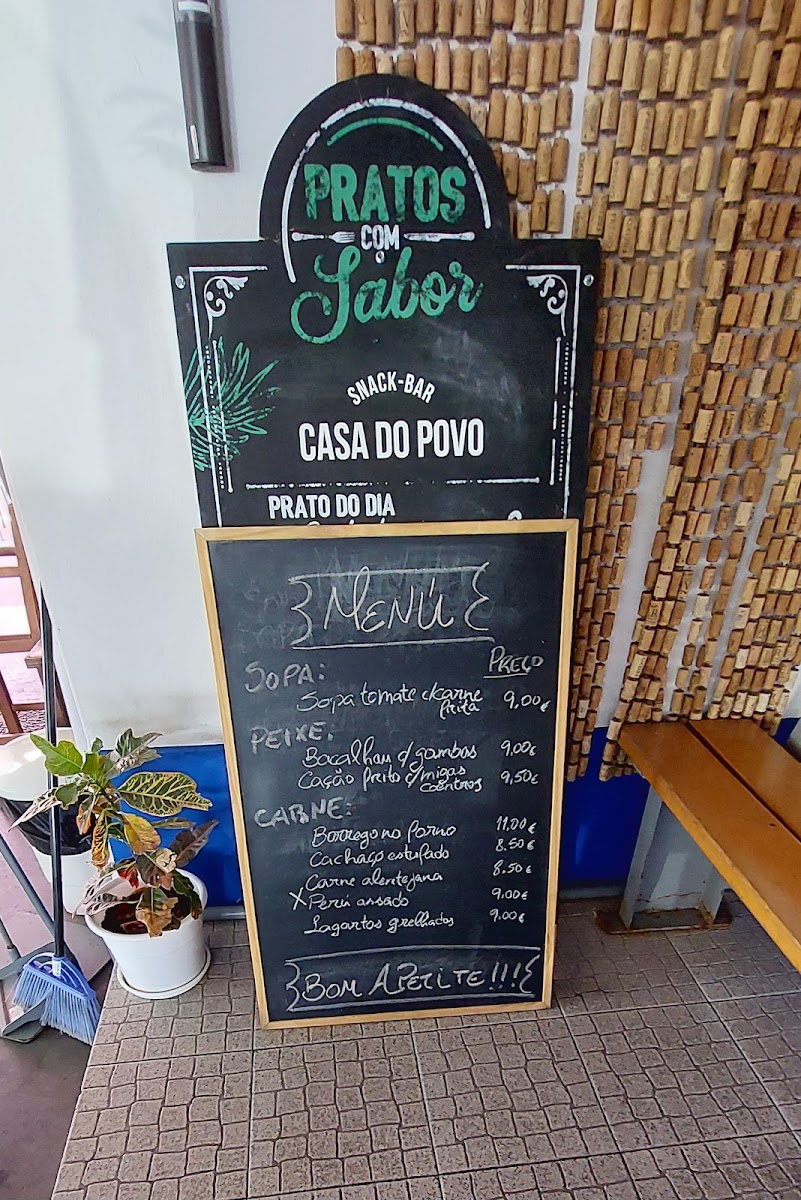 PRATOS
COM
Sabor
SNACK-BAR
CASA DO POVO
PRATO DO DIA
{MENÚ}
SOPA: PREÇO
Sopa tomate c/carne frita 9,00€
PEIXE:
Bacalhau c/ gambas 9.00€
Cação frito c/migas coentros 9,50€
CARNE:
Borrego no Forno 11,00€
Cachaço estufado 8.50€
Carne alentejana 8.50€
X Perú assado 9.00€
Lagartos grelhados 9,00€
{BOM APETITE!!!}